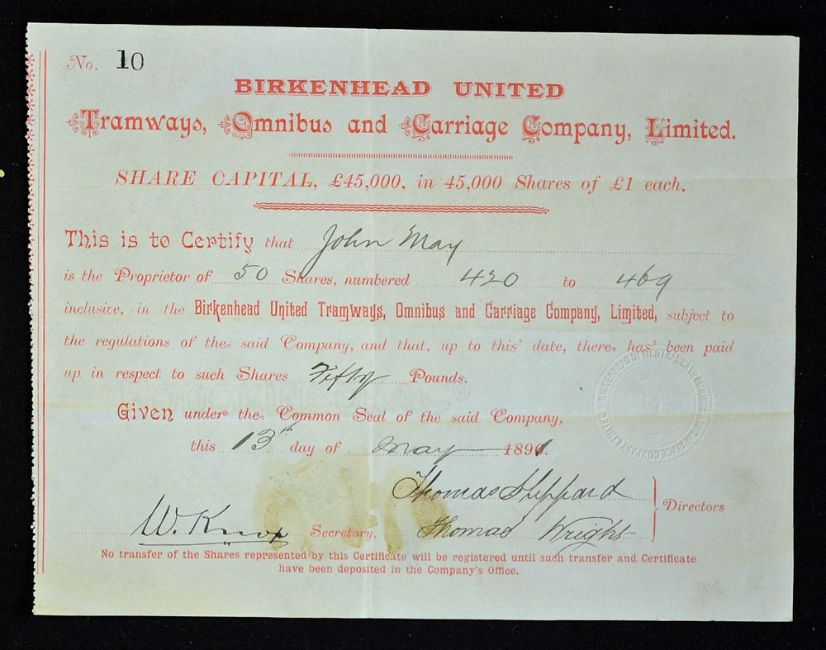 No. 10
BIRKENHEAD UNITED
Tramways, Omnibus and Carriage Company, Limited.
SHARE CAPITAL, £45,000, in 45,000 Shares of £1 each.
This is to Certify that John May
is the Proprietor of 50 Shares, numbered 420 to 469
inclusive, in the Birkenhead United Tramways, Omnibus and Carriage Company, Limited, subject to
the regulations of the said Company, and that, up to this date, there has been paid
up in respect to such Shares Fifty Pounds.
Given under the Common Seal of the said Company,
this 13th day of May 1891.
Thomas Sheppard
Directors
W. Knox Secretary. Thomas Wright
No transfer of the Shares represented by this Certificate will be registered until such transfer and Certificate
have been deposited in the Company's Office.